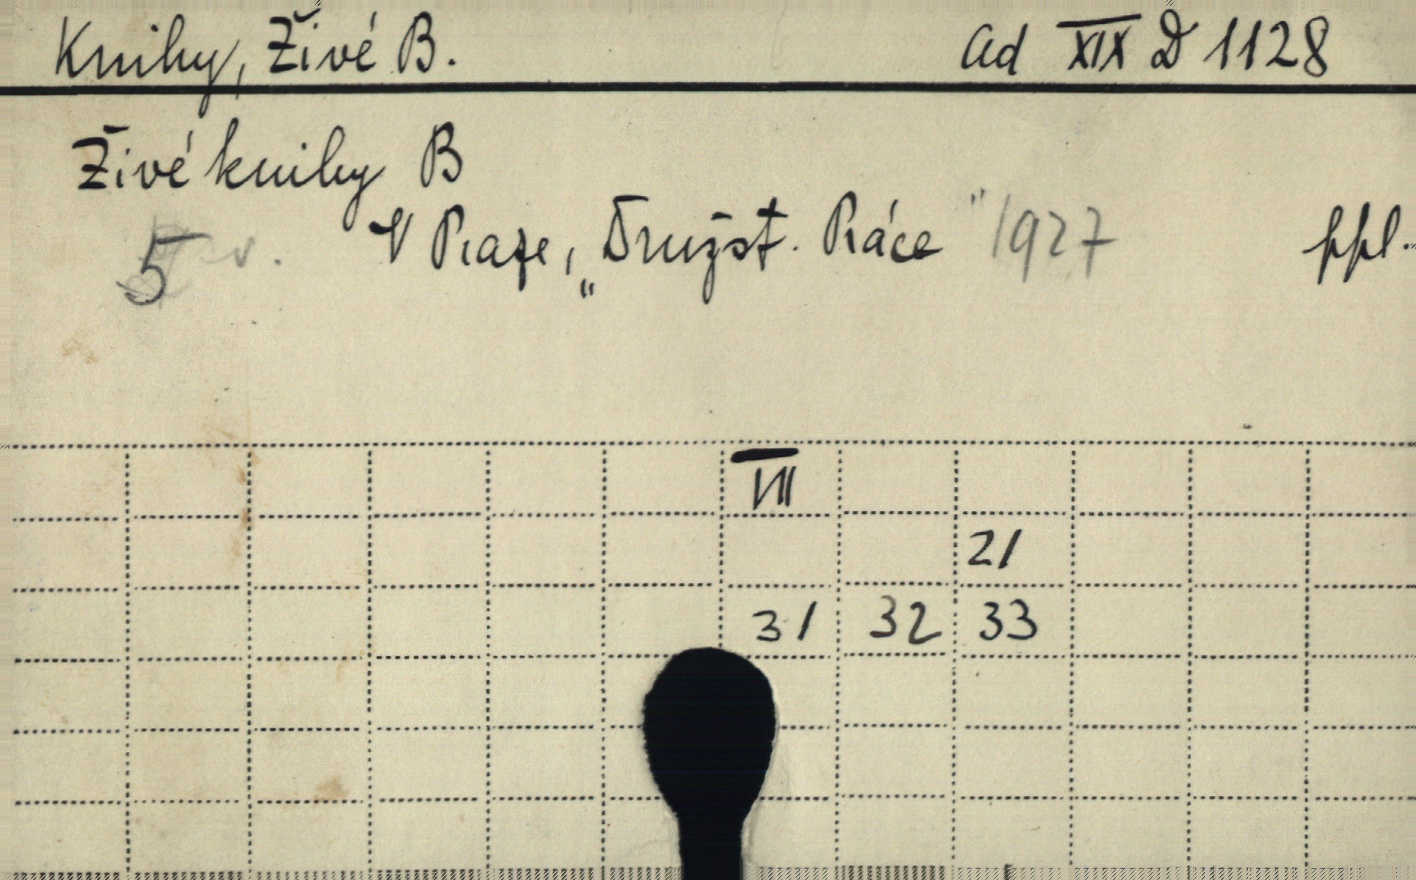 Knihy, Živé B. ad XIX D 1128
Živé knihy B
5 V Praze, „Družst. Práce" 1927 ppl.
VII
21
31 32 33